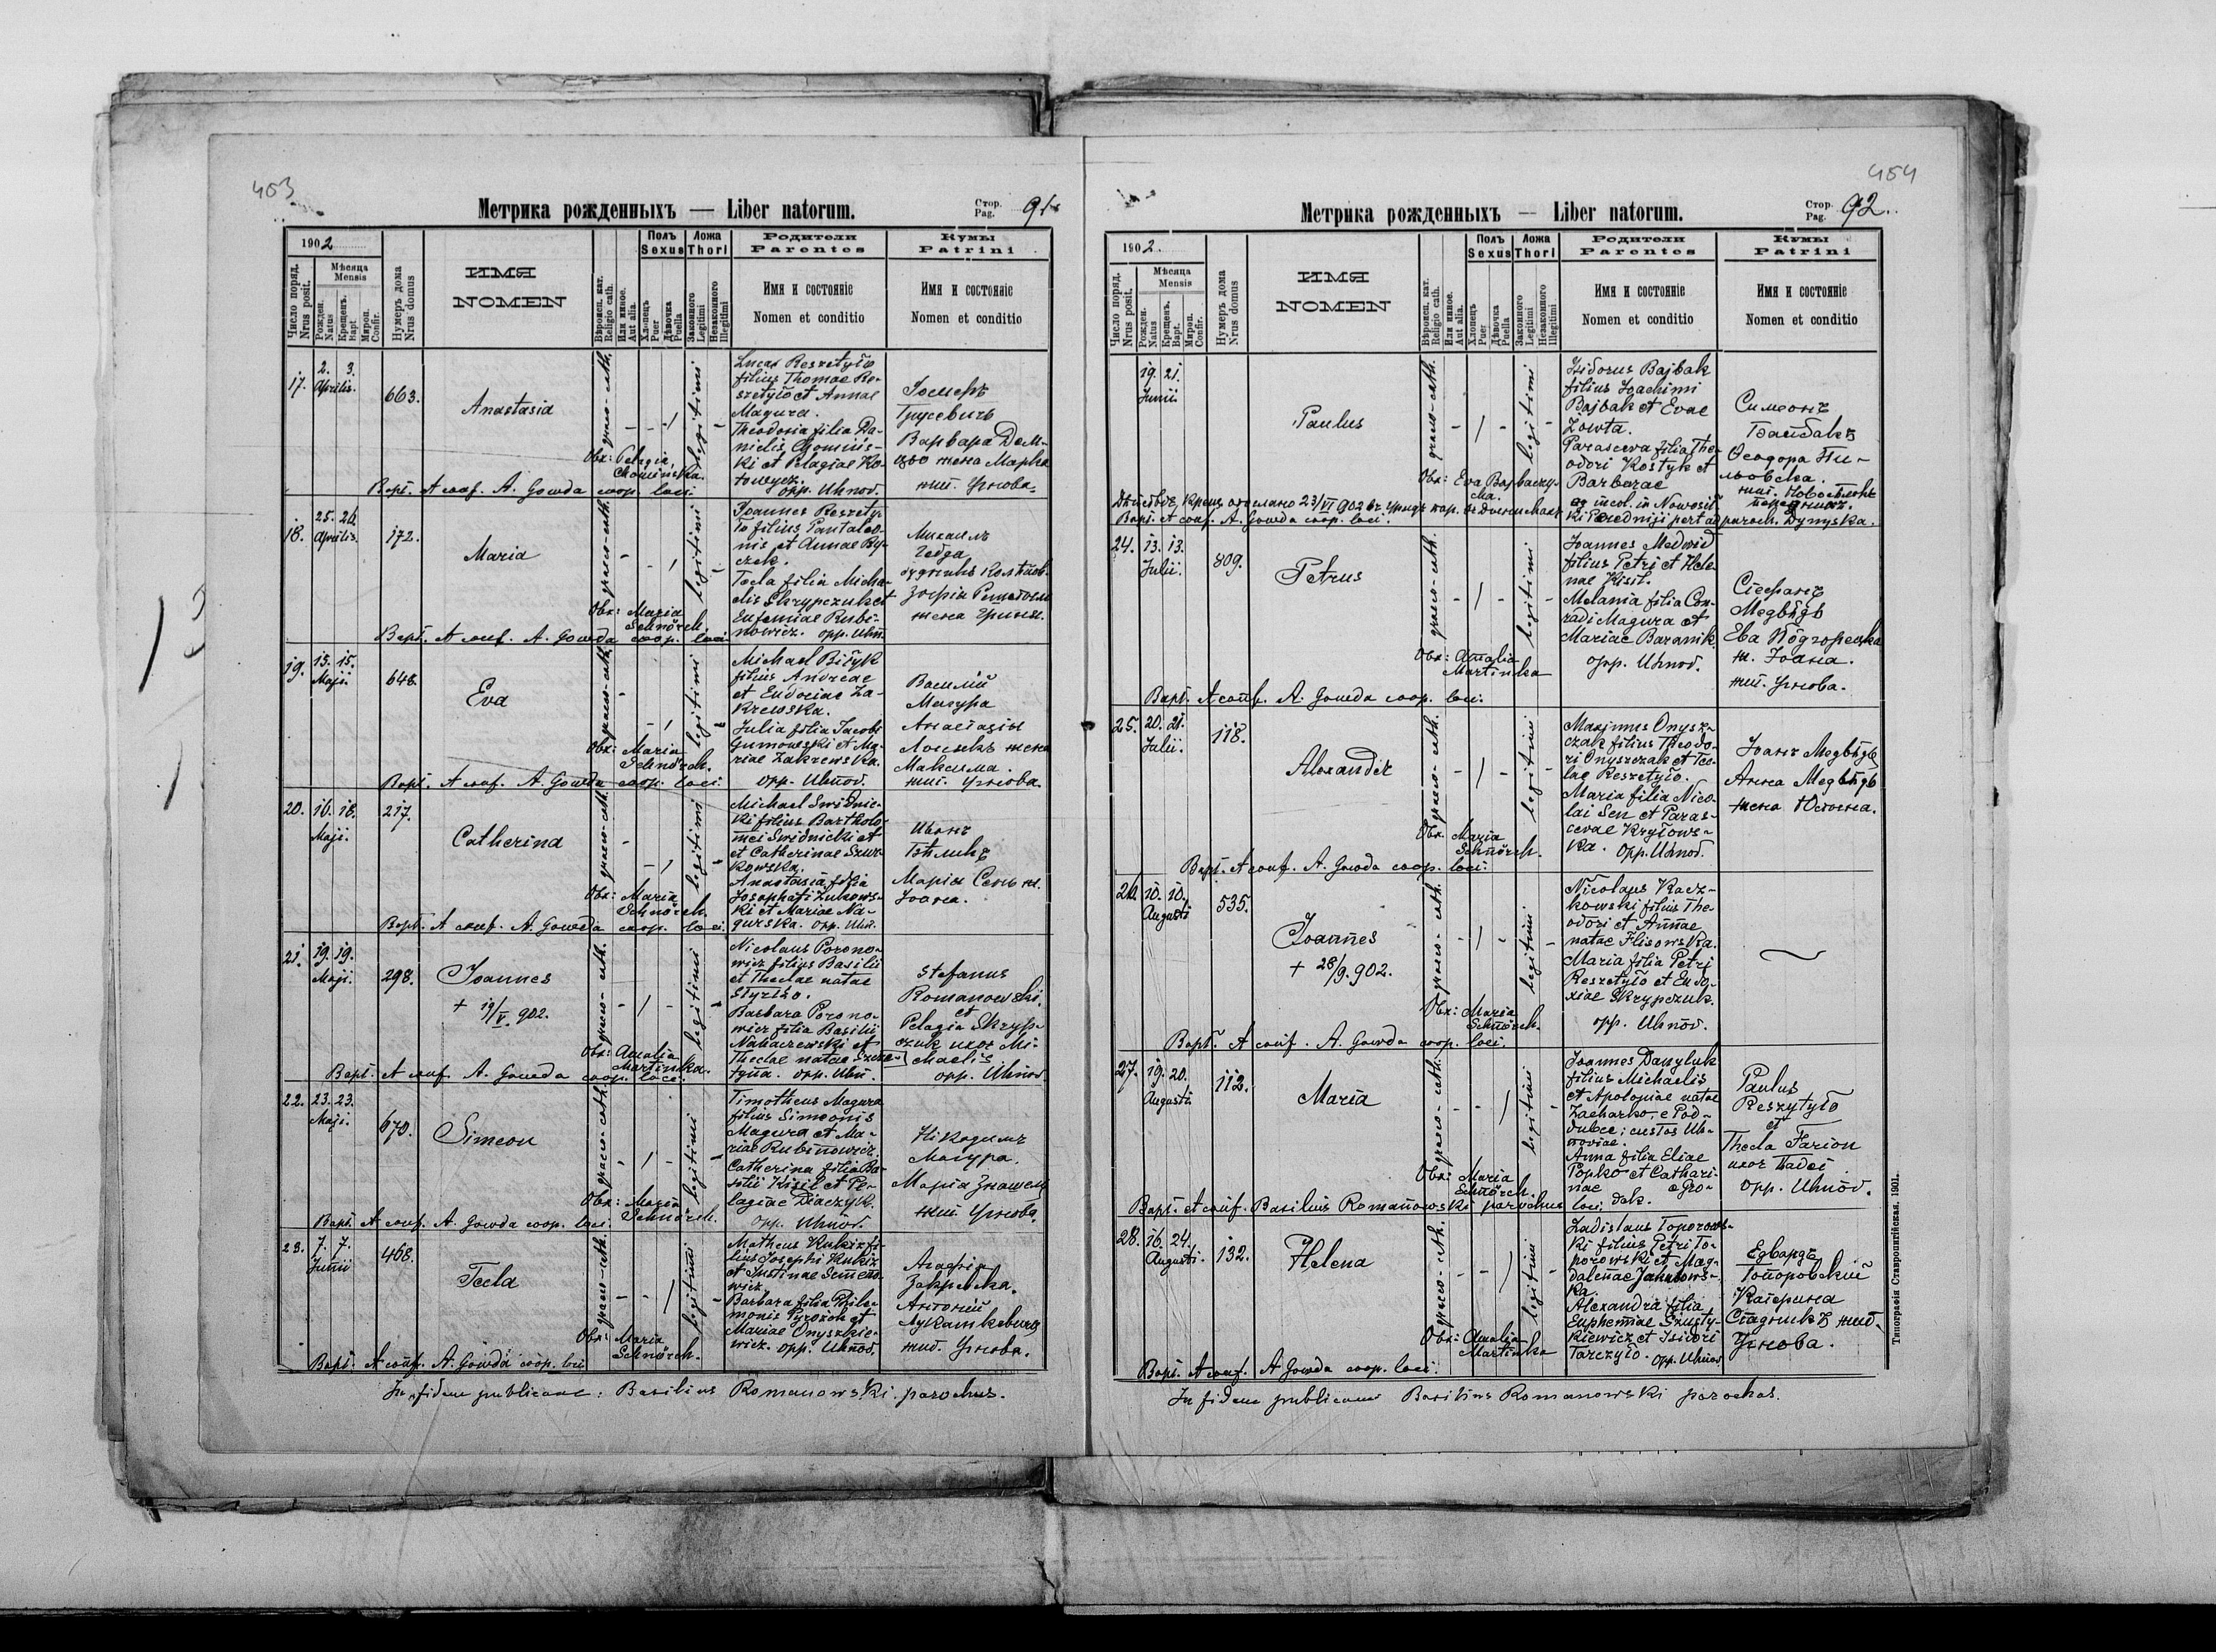 403
Метрика рожденныхъ — Liber natorum.
Стор. Pag. 91
1902
Число поряд. Nrus posit.
Мѣсяца Mensis
Рожден. Natus
Крещенъ. Bapt
Мѵроп. Confir.
Нумеръ дома Nrus domus
ИМЯ
NOMEN
Вѣроисп. кат. Religio cath.
Или инное. Aut alia.
Полъ Sexus
Хлопецъ Puer
Дѣвочка Puella
Ложа Thori
Законного Legitimi
Незаконного Illegitimi
Родители
Parentes
Имя и состоянiе
Nomen et conditio
Кумы
Patrini
Имя и состоянiе
Nomen et conditio
17. 2. 3. Aprilis. 663.
Anastasia
graeco-cath.
legitimi
Lucas Reszetyło
filius Thomae Re-
szetyło et Annae
Magura.
Theodosia filia Da-
nielis Chomińs-
ki et Pelagiae Ko-
towycz.
opp. Uhnod.
Іосифъ
Трусевичъ
Варвара Дем-
жена Марка
жит. Угнова.
Obs: Pelagia
Chomińska.
Bapt. et conf. A. Gowda coop. loci
18. 25. 26. Aprilis. 172.
Maria
graeco-cath.
legitimi
Joannes Reszety-
ło filius Pantaleo-
nis et Annae By-
czek.
Tecla filia Micha-
elis Skrypczuk et
Eufemiae Rubi-
nowicz. opp. Uhn.
Михаилъ
Софія Решетило
жена
Obs: Maria
Schnörch.
Bapt. et conf. A. Gowda coop. loci
19. 15. 15. Maji. 648.
Eva
graeco-cath.
legitimi
Michael Biłyk
filius Andreae
et Eudociae Za-
krewska.
Julia filia Jacobi
Gumowski et Ma-
riae Zakrewska.
opp. Uhnod.
Василій
Магура
Анастасія
жена
Максима.
жит. Угнова
Obs: Maria
Schnörch.
Bapt. et conf. A. Gowda coop. loci
20. 16. 18. Maji. 217.
Catherina
graeco-cath.
legitimi
Michael Swidnic-
ki filius Bartholo-
mei Swidnicki et
et Catherinae Szur-
kowska.
Anastasia filia
Josaphati Zukows-
ki et Mariae Na-
gurska. opp. Uhn.
Иванъ
Марія Сень ж.
Іоана.
Obs: Maria
Schnörch.
Bapt. et conf. A. Gowda coop. loci.
21. 19. 19. Maji. 298.
Joannes
+ 19/V. 902.
graeco-cath.
legitimi
Nicolaus Porono-
wicz filius Basilii
et Theclae natae
Styrko.
Barbara Porono-
wicz filia Basilii
Nahaczewski et
Theclae natae
opp. Uhn.
Stefanus
Romanowski.
et
Pelagia Skryp-
czuk uxor Mi-
chaelis
opp. Uhnod
Obs: Amalia
Martinka.
Bapt. et conf A. Gowda coop. loci.
22. 23. 23. Maji. 670.
Simeon
graeco-cath.
legitimi
Timotheus Magura
filius Simeonis
Magura et Ma-
riae Rubinowicz.
Catherina filia Ba-
silii Kisil et Pe-
lagiae Diaczyk.
opp. Uhnod.
Никодимъ
Магура.
Марія
жит. Угнова
Obs: Maria
Schnörch.
Bapt. et conf. A. Gowda coop. loci
23. 7. 7. Junii 468.
Tecla
graeco-cath.
legitimi
Matheus Kukiz fi-
lius Josephi Kukiz
et Justinae Semeno-
wicz.
Barbara filia Phile-
monis Pyrożok et
Mariae Onyszkie-
wicz. opp. Uhnod.
Агафія
Антоній
Лукашкевичъ
жит. Угнова.
Obs: Maria
Schnörch.
Bapt. et conf. A. Gowda coop. loci
In fidem publicam: Basilius Romanowski parochus.
454
Метрика рожденныхъ — Liber natorum.
Стор. Pag. 92.
1902.
Число поряд. Nrus posit.
Мѣсяца Mensis
Рожден. Natus
Крещенъ. Bapt.
Мѵроп. Confir.
Нумеръ дома Nrus domus
ИМЯ
NOMEN
Вѣроисп. кат. Religio cath.
Или инное. Aut alia.
Полъ Sexus
Хлопецъ Puer
Дѣвочка Puella
Ложа Thori
Законного Legitimi
Незаконного Illegitimi
Родители
Parentes
Имя и состоянiе
Nomen et conditio
Кумы
Patrini
Имя и состоянiе
Nomen et conditio
19. 21. Junii
Paulus
graeco-cath.
legitimi
Isidorus Bajbak
filius Joachimi
Bajbak et Evae
Zowta.
Parasceva filia The-
odori Kostyk et
Barbarae
incol. in Nowosił-
ki Peredniji pert ad paroch. Dynyska.
Симеонъ
Байбакъ
Ѳеодора
жит. Новосѣлокъ
передныхъ.
Obs: Eva
23/VI 902
Bapt. et conf. A. Gowda coop. loci.
24. 13. 13. Julii. 809.
Petrus
graeco-cath.
legitimi
Joannes Medwid
filius Petri et Hele-
nae Kisil.
Melania filia Con-
radi Magura et
Mariae Baranik.
opp. Uhnod.
Стефанъ
Медвѣдь
Ева
ж. Іоана.
жит. Угнова.
Obs: Amalia
Martinka
Bapt. et conf. A. Gowda coop. loci.
25. 20. 21. Julii. 118.
Alexander
graeco-cath.
legitimi
Maximus Onysz-
czak filius Theodo-
ri Onyszczak et Tec-
lae Reszetyło.
Maria filia Nico-
lai Sen et Paras-
cevae Kryłows-
ka. opp. Uhnod.
Іоанъ Медвѣдь
Анна Медвѣдь
жена
Obs. Maria
Schnörch.
Bapt. et conf. A. Gowda coop. loci.
26. 10. 10. Augusti 535.
Joannes
+ 28/9. 902.
graeco-cath.
legitimi
Nicolaus Kacz-
kowski filius The-
odori et Annae
natae Flisowska.
Maria filia Petri
Reszetyło et Eudo-
xiae Skrypczuk.
opp. Uhnod.
Obs: Maria
Schnörch.
Bapt. et conf. A. Gowda coop. loci.
27. 19. 20. Augusti 112.
Maria
graeco-cath.
legitimi
Joannes Danyluk
filius Michaelis
et Apoloniae natae
Zacharko, e Pod-
dubce; custos Uh-
noviae.
Anna filia Eliae
Popko et Cathari-
nae
Paulus
Reszytyło
et
Thecla Farion
uxor
opp. Uhnod.
Obs: Maria
Schnörch.
Bapt. et conf. Basilius Romanowski parochus loci.
28. 16. 24. Augusti. 132.
Helena
graeco-cath.
legitimi
Ladislaus Toporows-
ki filius Petri To-
porowski et Mag-
dalenae Jakubows-
ka.
Alexandra filia
Euphemiae Szusty-
kiewicz et Isidori
Tarczyło. opp. Uhnod
Едвардъ
Топоровскій
Катерина
жит.
Угнова.
Obs: Amalia
Martinka
Bapt. et conf. A Gowda coop. loci.
In fidem publicam Basilius Romanowski parochus.
Типографія Ставропигійская. 1901.